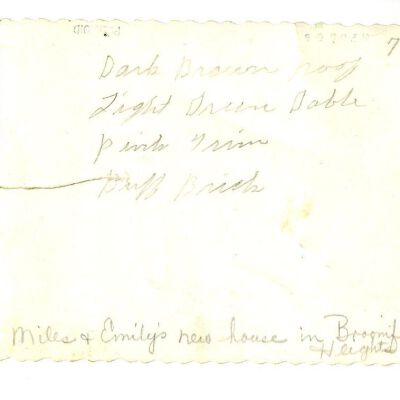 7
Dark Brown roof
Light Green Gable
Pink Trim
Buff Brick
Miles & Emily's new house in
Heights